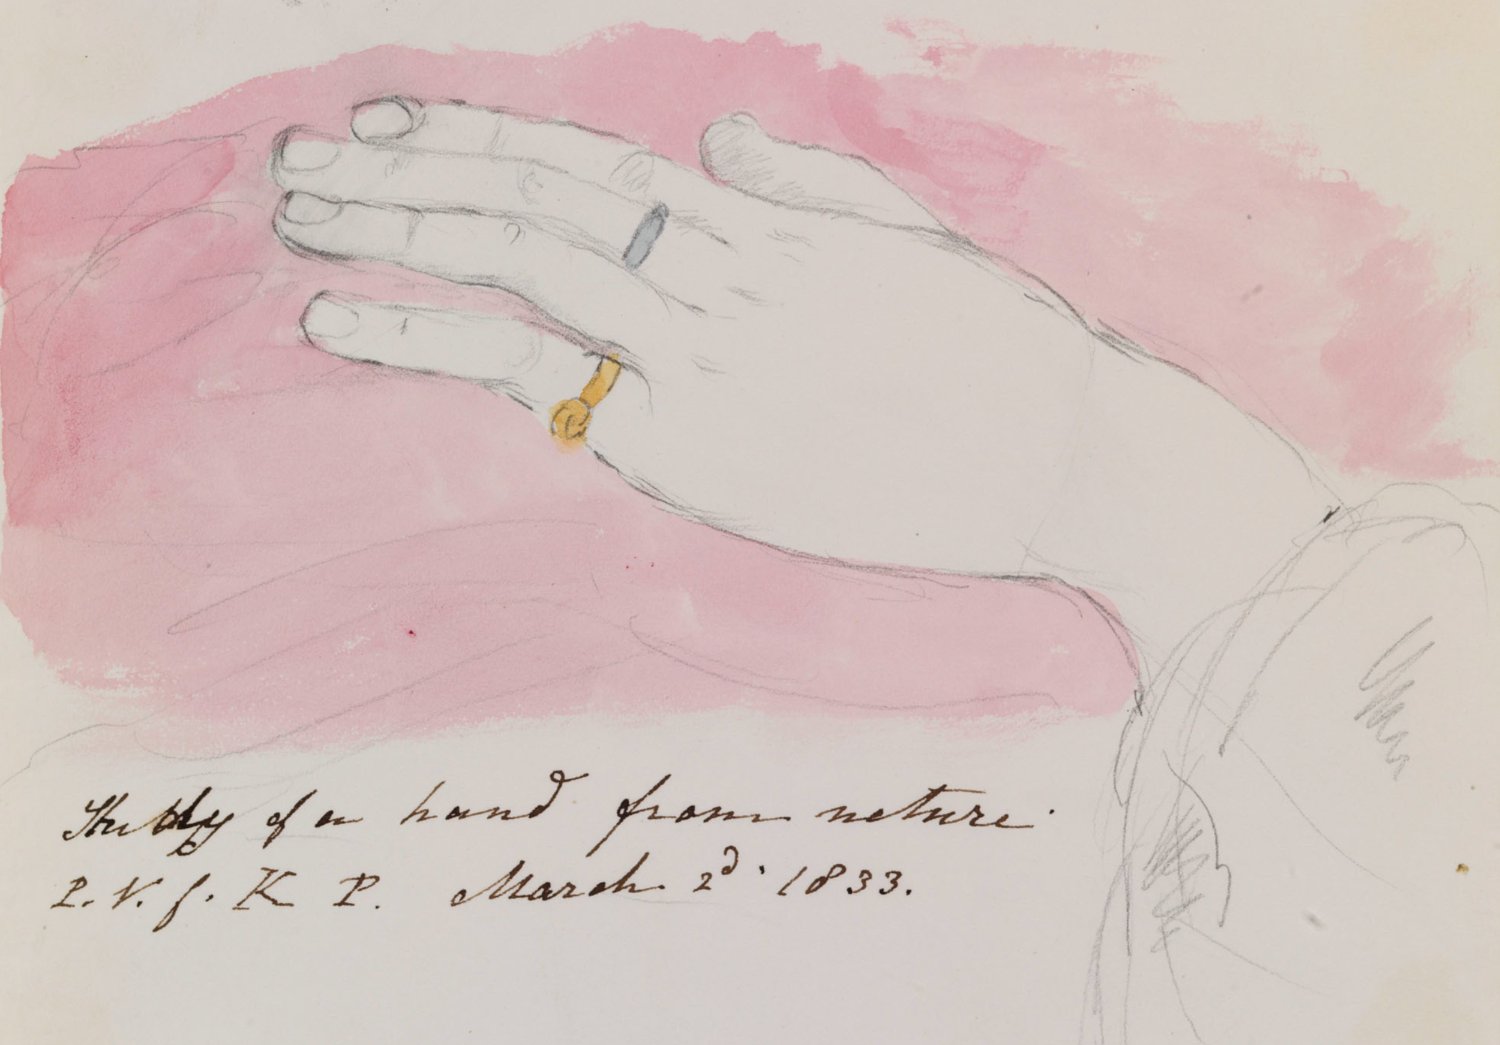 Study of a hand from nature.
P. V. f. K P. March 2d. 1833.